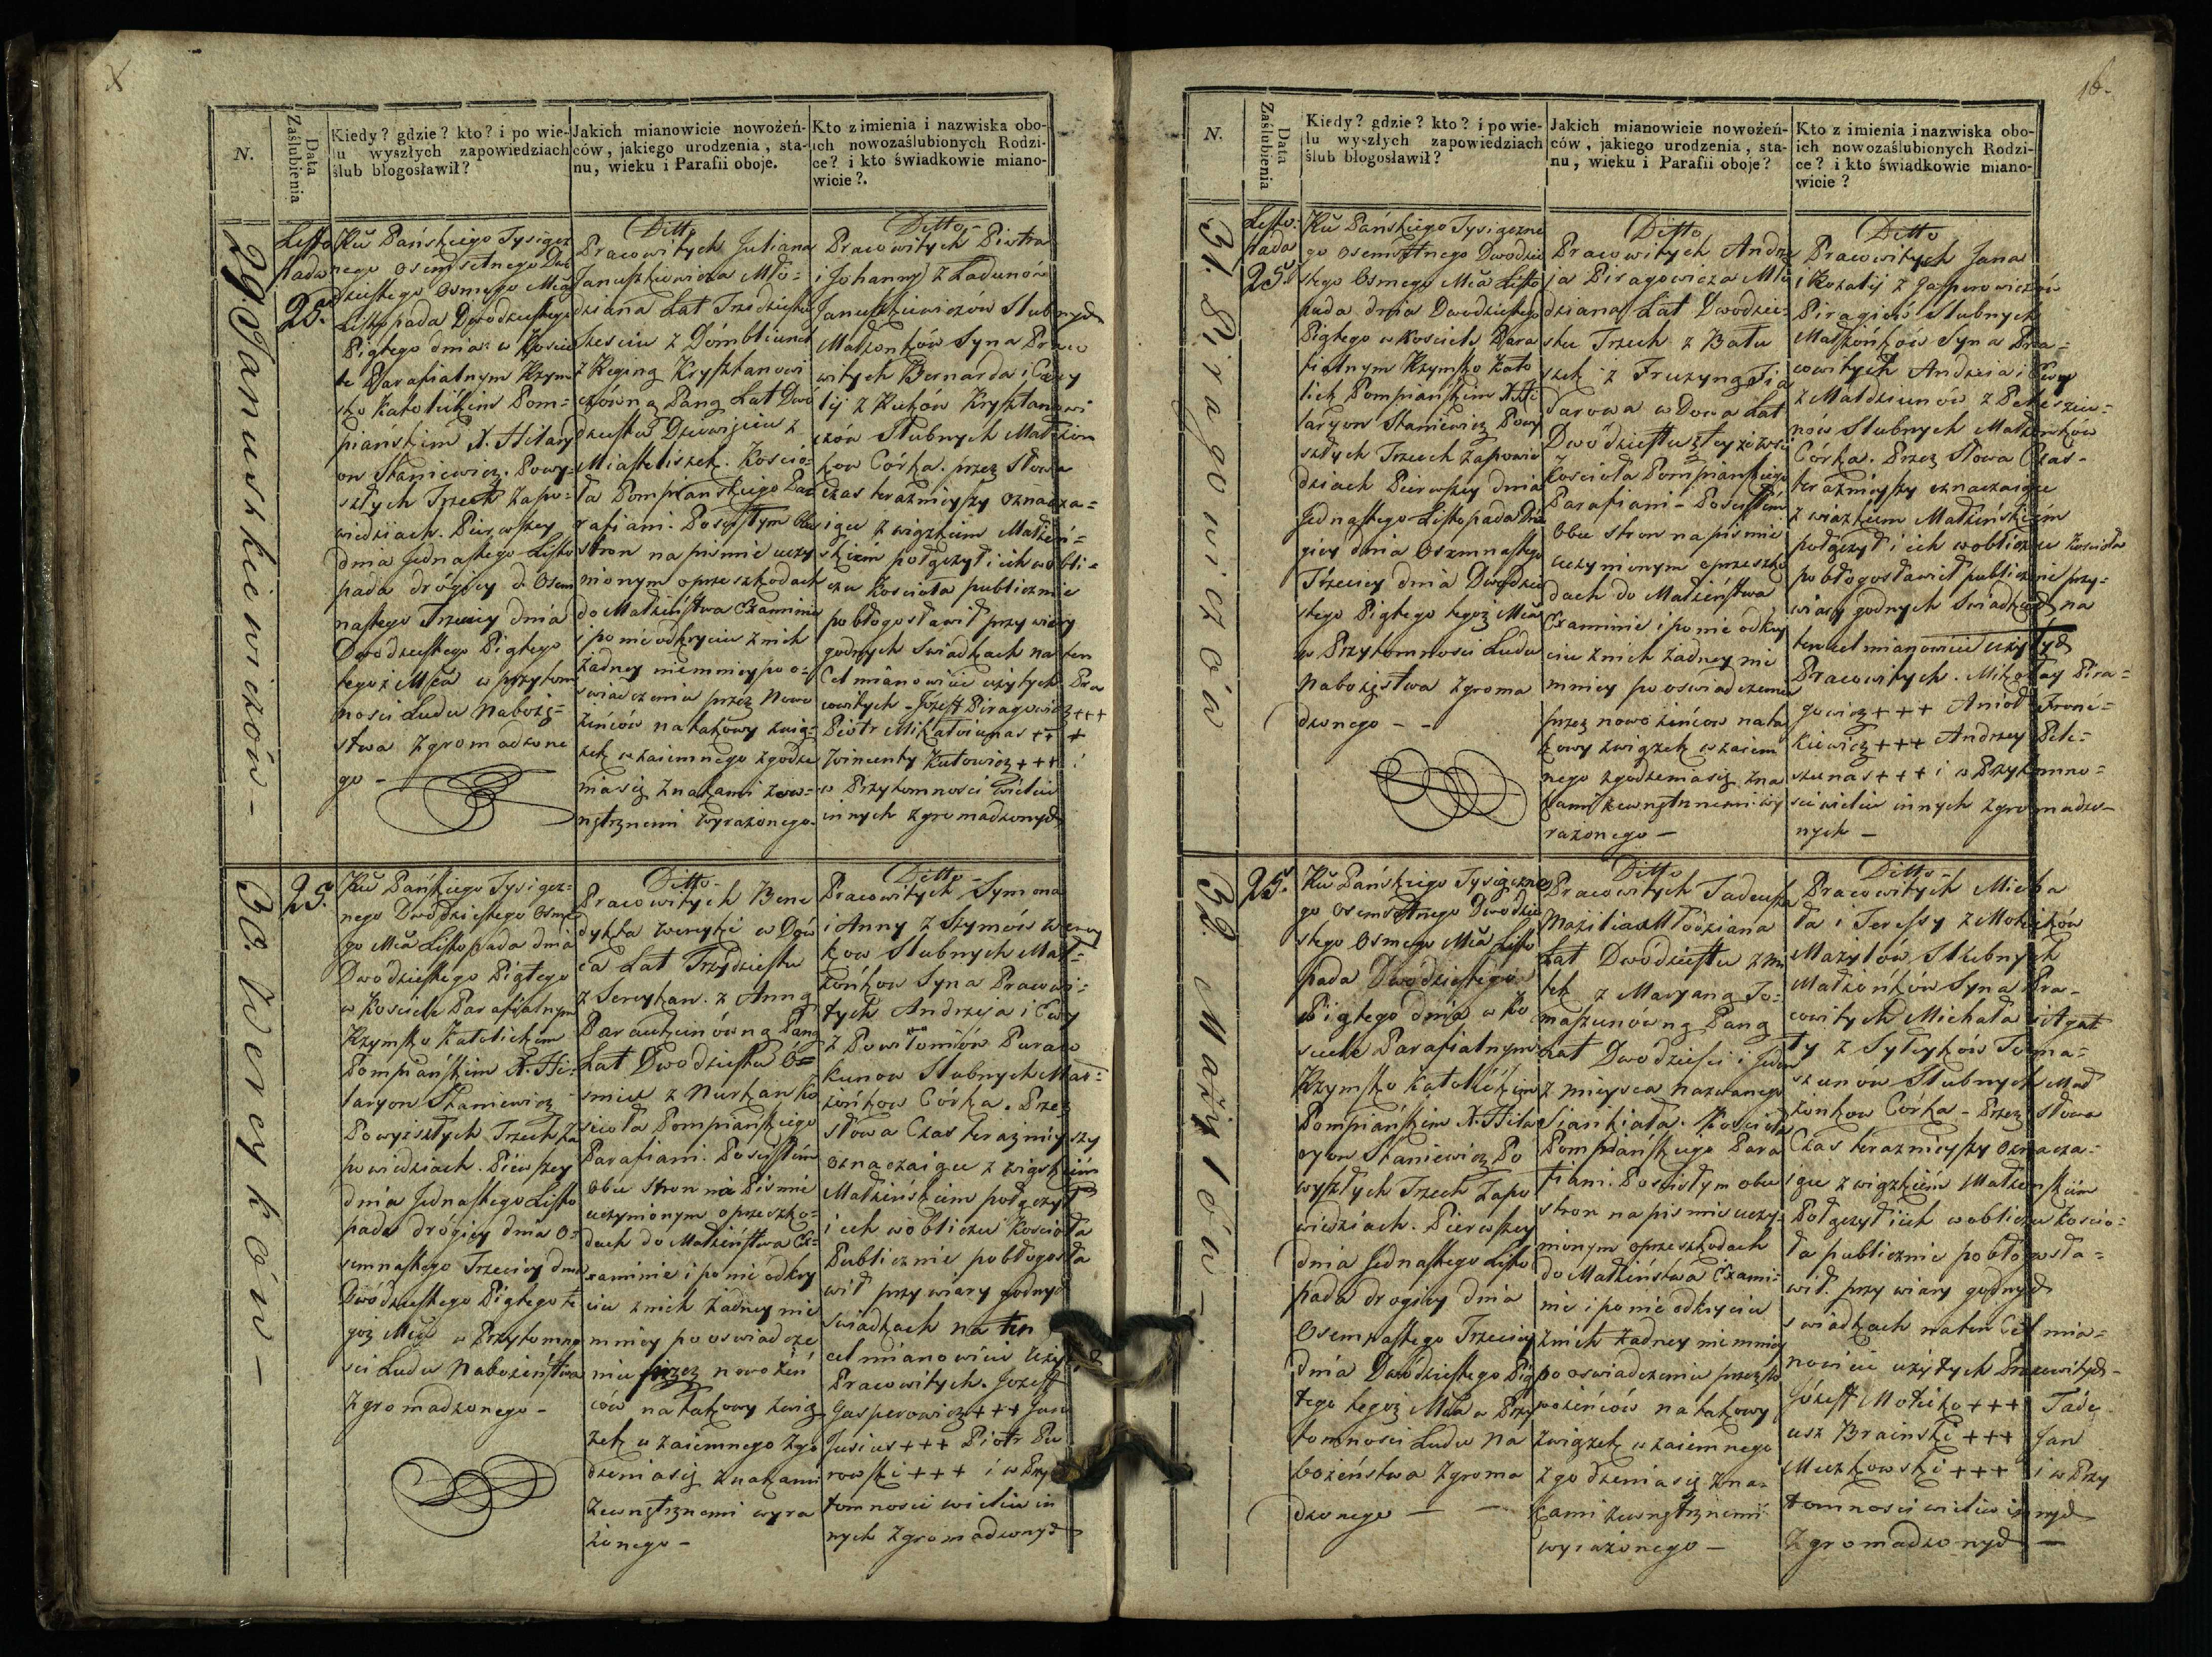 X
N.
Data
Zaślubienia
Kiedy? gdzie? kto? i po wie-
lu wyszłych zapowiedziach
ślub błogosławił?
Jakich mianowicie nowożeń-
ców, jakiego urodzenia, sta-
nu, wieku i Parafii oboje.
Kto z imienia i nazwiska obo-
ich nowozaślubionych Rodzi-
ce? i kto świadkowie miano-
wicie?.
29. Januszkiewiczów -
Listo
pada
25.
Rku Pańskiego Tysiącz
nego osiemsetnego Dwó
dziestego osmego Mca
Listopada Dwódziestego
Piątego dnia w Koscie
le Parafialnym Rzym
sko Katolickim Pom=
piańskim X. Hilary
on Staniewicz. Powy-
szłych Trzech Zapo=
wiedziach. Pierwszey
dnia Jednastego Listo
pada drógiey d. Osm
nastego Trzeciey dnia
Dwódziestego Piątego
tegoż Mca w przytom
nosci Ludu Naboże=
stwa zgromadzone
go -
Ditto
Pracowitych Juliana
Januszkiewicza Mło=
dziana Lat Trzidziestu
szesciu z
z Reginą Krysztanowi
czówną Panną Lat Dwó
dziestu Dziewięciu z
Kościo=
ła Pompianskiego Par
rafiani. Poscisłym obu
stron na piśmie uczy
nionym oprzeszkodach
do Małżeństwa Examinie
i po nie odkryciu z nich
żadney niemniey po o-
swiadczeniu przez Nowo
żeńców natakowy zwią-
zek wzaiemnego zgodze
nia się Znakami zew=
nętrznemi wyrażonego.
Ditto -
Pracowitych Piotra
i Johanny z Ładunów
Januszkiewiczów Slubnych
Małżonków Syna Praco
witych Bernarda i
z Kuków Krysztanowi
czów Slubnych Małżon
ków Córka. przez Słowa
Czas teraźnieyszy oznacza=
iące z więzkiem Małżeń=
skiem połączył i ich wobli=
czu Kościoła publicznie
pobłogosławił przy wiary
godnych Swiadkach na ten
Cel mianowicie użytych Pra
cowitych - Józeff Piragowicz +++
Piotr Mikałaiunas +++
Wincenty Kutowicz +++ i
w Przytomności wieliu
innych zgromadzonych
30. Wereyków -
25.
Rku Pańskiego Tysiącz=
nego Dwódziestego Osme
go Mca Listopada dnia
Dwódziestego Piątego
w Kosciele Parafialnym
Rzymsko Katolickim
Pompiańskim X. Hi-
laryon Staniewicz
Powyiszłych Trzech Za
powiedziach. Pierwszey
dnia Jednastego Listo
pada drógiey dnia O=
semnastego Trzeciey dnia
Dwódziestego Piątego te
goż Mca w Przytomno
sci Ludu Nabożeństwa
Zgromadzonego -
Ditto -
Pracowitych Bene
dykta Wereyki w Dów
ca Lat Trzydziestu
z Sereykan. z Anną
Panną
Lat Dwódziestu O=
smiu z Nurkan Ko
scioła Pompianskiego
Parafiani. Poscisłem
obu stron na Pismie
uczynionym oprzeszko=
dach do Małżeństwa Ex=
aminie i po nie odkry
ciu z nich żadney nie
mniey po oswiadcze
niu przez nowożeń
ców na takowy zwią
zek wzaiemnego zgo
dzenia się Znakami
Zewnętrznemi wyra
żonego -
Ditto -
Pracowitych Symona
i Anny z Szymów Werey
ków Slubnych Mał=
żonków Syna Pracowi=
tych Andrzeja i Ewy
z
Slubnych Mał=
żonków Córka. Przez
słowa Czas teraźnieyszy
oznaczaiące z więzkiem
Małżeńskiem połączył
i ich wobliczu Kościoła
Publicznie pobłogosła
wił przy wiary godnych
swiadkach na ten
cel mianowicie Uży
Pracowitych. Jozeff
Gasperowicz +++ Jan
Jusius +++ Piotr Pu
rowski +++ i w Przy
tomności wieliu in
nych Zgromadzonych
16.
N.
Data
Zaślubienia
Kiedy? gdzie? kto? i po wie-
lu wyszłych zapowiedziach
ślub błogosławił?
Jakich mianowicie nowożeń-
ców, jakiego urodzenia, sta-
nu, wieku i Parafii oboje?
Kto z imienia i nazwiska obo-
ich nowozaślubionych Rodzi-
ce? i kto świadkowie miano-
wicie?
31. Piragowiczów
Listo=
pada
25.
Rku Pańskiego Tysiączne
go osemsetnego Dwódzie
stego Osmego Mca Listo
pada dnia Dwódziestego
Piątego w Kosciele Para
fialnym Rzymsko Kato
lick Pompiańskim X. Hi
laryon Staniewicz Powy
szłych Trzech Zapowie
dziach Pierwszey dnia
Jednastego Listopada Dró
giey dnia Osemnastego
Trzeciey dnia Dwódzie
stego Piątego tegoż Mca
w Przytomnosci Ludu
Nabożestwa Zgroma
dzonego - -
Ditto
Pracowitych Andrze
ja Piragowicza Mło
dziana Lat Dwódzie=
stu Trzech z Batu
szek z Fruzyną
wdowa Lat
Dwódziestu
Kościoła Pompianskiego
Parafiani - Poscisłem
Obu stron na piśmie
Uczynionym oprzeszko
dach do Małżeństwa
Examinie i po nie odkry
ciu z nich żadney nie
mniey po oswiadczeniu
przez nowożeńcow nata
kowy związek wzaiem
nego zgodzenia się Zna
kami Zewnętrznemi wy
rażonego -
Ditto
Pracowitych Jana
i Rozalij z Gasperowiczów
Piragiów Slubnych
Małżońków Syna Pra=
cowitych Andrzeia i Ewy
z Matdziunów z
Slubnych Małżonków
Córka. Przez słowa Czas-
teraźnieyszy oznaczaiące
z wiazkiem Małżeńskiem
połączył i ich wobliczu Kościoła
pobłogosławił publicznie przy=
wiary godnych Swiadkach na
ten cel mianowicie użytych
Pracowitych. Mikołay Pira=
gowicz +++ Anioł Franc=
kiewicz +++ Andrzey Pele=
szunas +++ i w Przytomno=
sci wieliu innych zgromadzo-
nych -
32. Mażylów -
25.
Rku Pańskiego Tysiączne
go osemsetnego Dwódzie
stego Osmego Mca Listo
pada Dwódziestego
Piątego dnia w Ko
sciele Parafialnym
Rzymsko Katolickim
Pompiańskim X. Hila
ryon Staniewicz Po
wyszłych Trzech Zapo
wiedziach. Pierwszey
dnia Jednastego Listo
pada drogiey dnia
Osemnastego Trzeciey
dnia Dwódziestego Pią
tego tegoż Mca w Przy
tomnosci Ludu Na
bożeństwa Zgroma
dzonego - -
Ditto
Pracowitych Tadeusza
Młodziana
Lat Dwódziestu z
z Maryaną To=
maszunówną Panną
Lat Dwódziesci i Jeden
z mieysca nazwanego
Kościoła
Pompiańskiego Para
fiani. Poscisłym obu
stron na piśmie uczy-
nionym oprzeszkodach
do Małżeństwa Exami-
nie i po nie odkryciu
z nich żadney niemniey
po oswiadczeniu przez no
wożeńców na takowy
związek wzaiemnego
zgodzenia się Zna-
kami zewnętrznemi
wyrażonego -
Ditto -
Pracowitych Micha
ła i Teressy z Motiejków
Mażylów, Slubnych
Małżońków Syna Pra-
cowitych Michała i Agat
ty z Toma=
szunów Slubnych Mał
żonkow Córka - Przez słowa
Czas teraznieyszy oznacza=
iące związkiem Małżenskiem
Połączył i ich wobliczu Koscio=
ła publicznie pobłogosła=
wił. przy wiary godnych
swiadkach na ten Cel mia=
nowicie użytych Pracowitych -
Józeff Moteiko +++ Tade
usz Brainski +++ Jan
Muzkowski +++ i w Przy
tomnosci wieliu innych
Zgromadzonych -